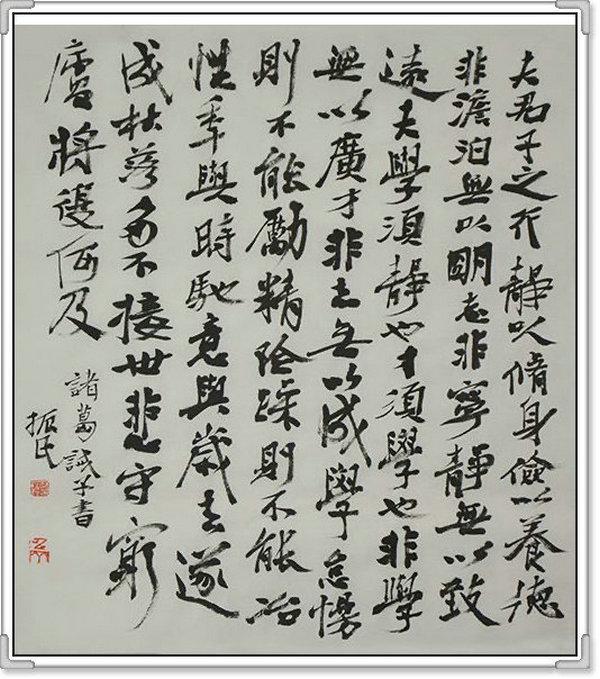 夫君子之行靜以脩身儉以養德
非澹泊無以明志非寧靜無以致
遠夫學須靜也才須學也非學
無以廣才非志无以成學怠慢
則不能勵精險躁則不能冶
性年與時馳意與歲去遂
成枯落多不接世悲守窮
廬將復何及
諸葛誡子書
振民